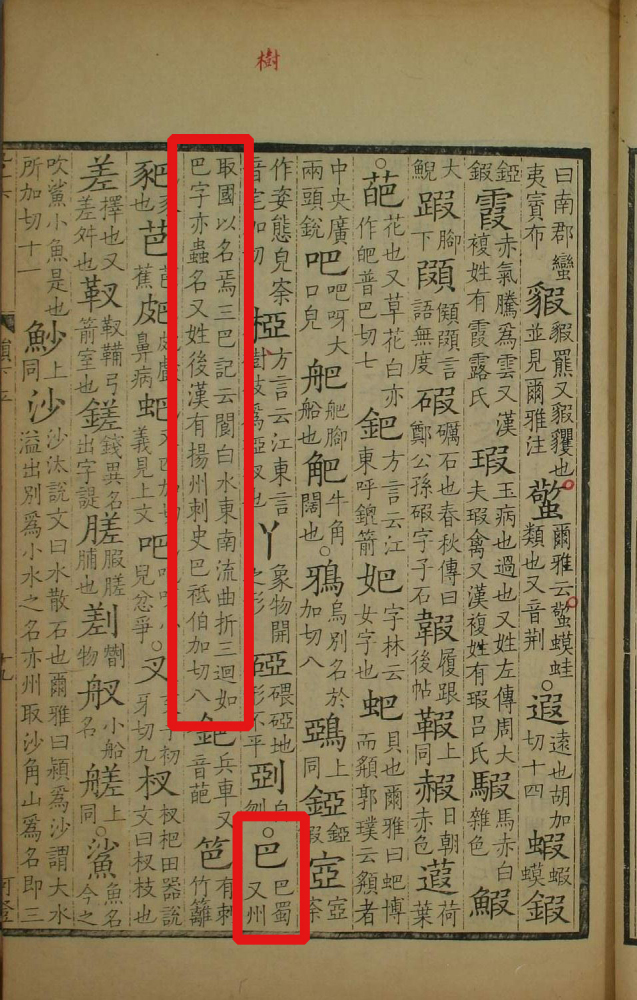 曰南郡蠻夷賓布貑貑羆又貑玃也並見爾雅注蟼爾雅云蟼蟆蛙類也又音荆○遐遠也胡加切十四蝦蝦蟆鍜
錏鍜霞赤氣騰爲雲又漢複姓有霞露氏瑕玉病也過也又姓左傳周大夫瑕禽又漢複姓有瑕呂氏騢馬赤白雜色鰕
大鯢腳下言語無度碬礪石也春秋傳曰鄭公孫碬字子石䪗履跟後帖上同赮日朝赤色蕸荷葉
○葩花也又草花白亦作皅普巴切七鈀方言云江東呼鎞箭妑字林云女字也蚆貝也爾雅曰蚆博而頯郭璞云頯者
中央廣兩頭銳吧吧呀大口皃舥舥船也牛角闊也○鴉烏別名於加切八鵶上同錏錏鍜
作姿態皃椏方言云江東言樹枝爲椏杈也丫象物開之形地形不平○巴巴蜀又州
取國以名焉三巴記云閬白水東南流曲折三迴如巴字亦蟲名又姓後漢有揚州刺史巴祗伯加切八鈀兵車又音葩笆有刺竹籬
豝豕也芭芭蕉鼻病蚆義見上文吧兒忿爭○叉初牙切九杈杈杷田器說文曰杈枝也
差擇也又差舛也靫靫鞴弓箭室也鎈錢異名出字諟脯也物小船名艖上同○鯊魚名今之
吹鯊小魚是也所加切十一魦上同沙沙汰說文曰水散石也爾雅曰潁爲沙謂大水溢出別爲小水之名亦州取沙角山爲名即三
樹